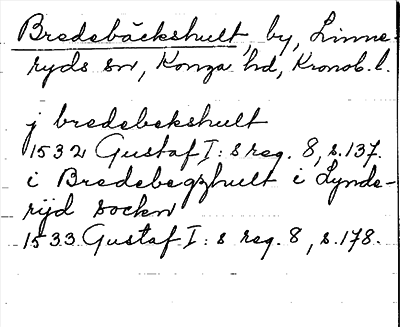 Bredebäckshult, by, Linne-
ryds sn, Konga hd, Kronob. l.
j bredebekshult
1532 Gustaf I:s reg. 8, s. 137.
i Bredebegzhult i Lynde-
rijd sockn
1533 Gustaf I:s reg. 8, s. 178.